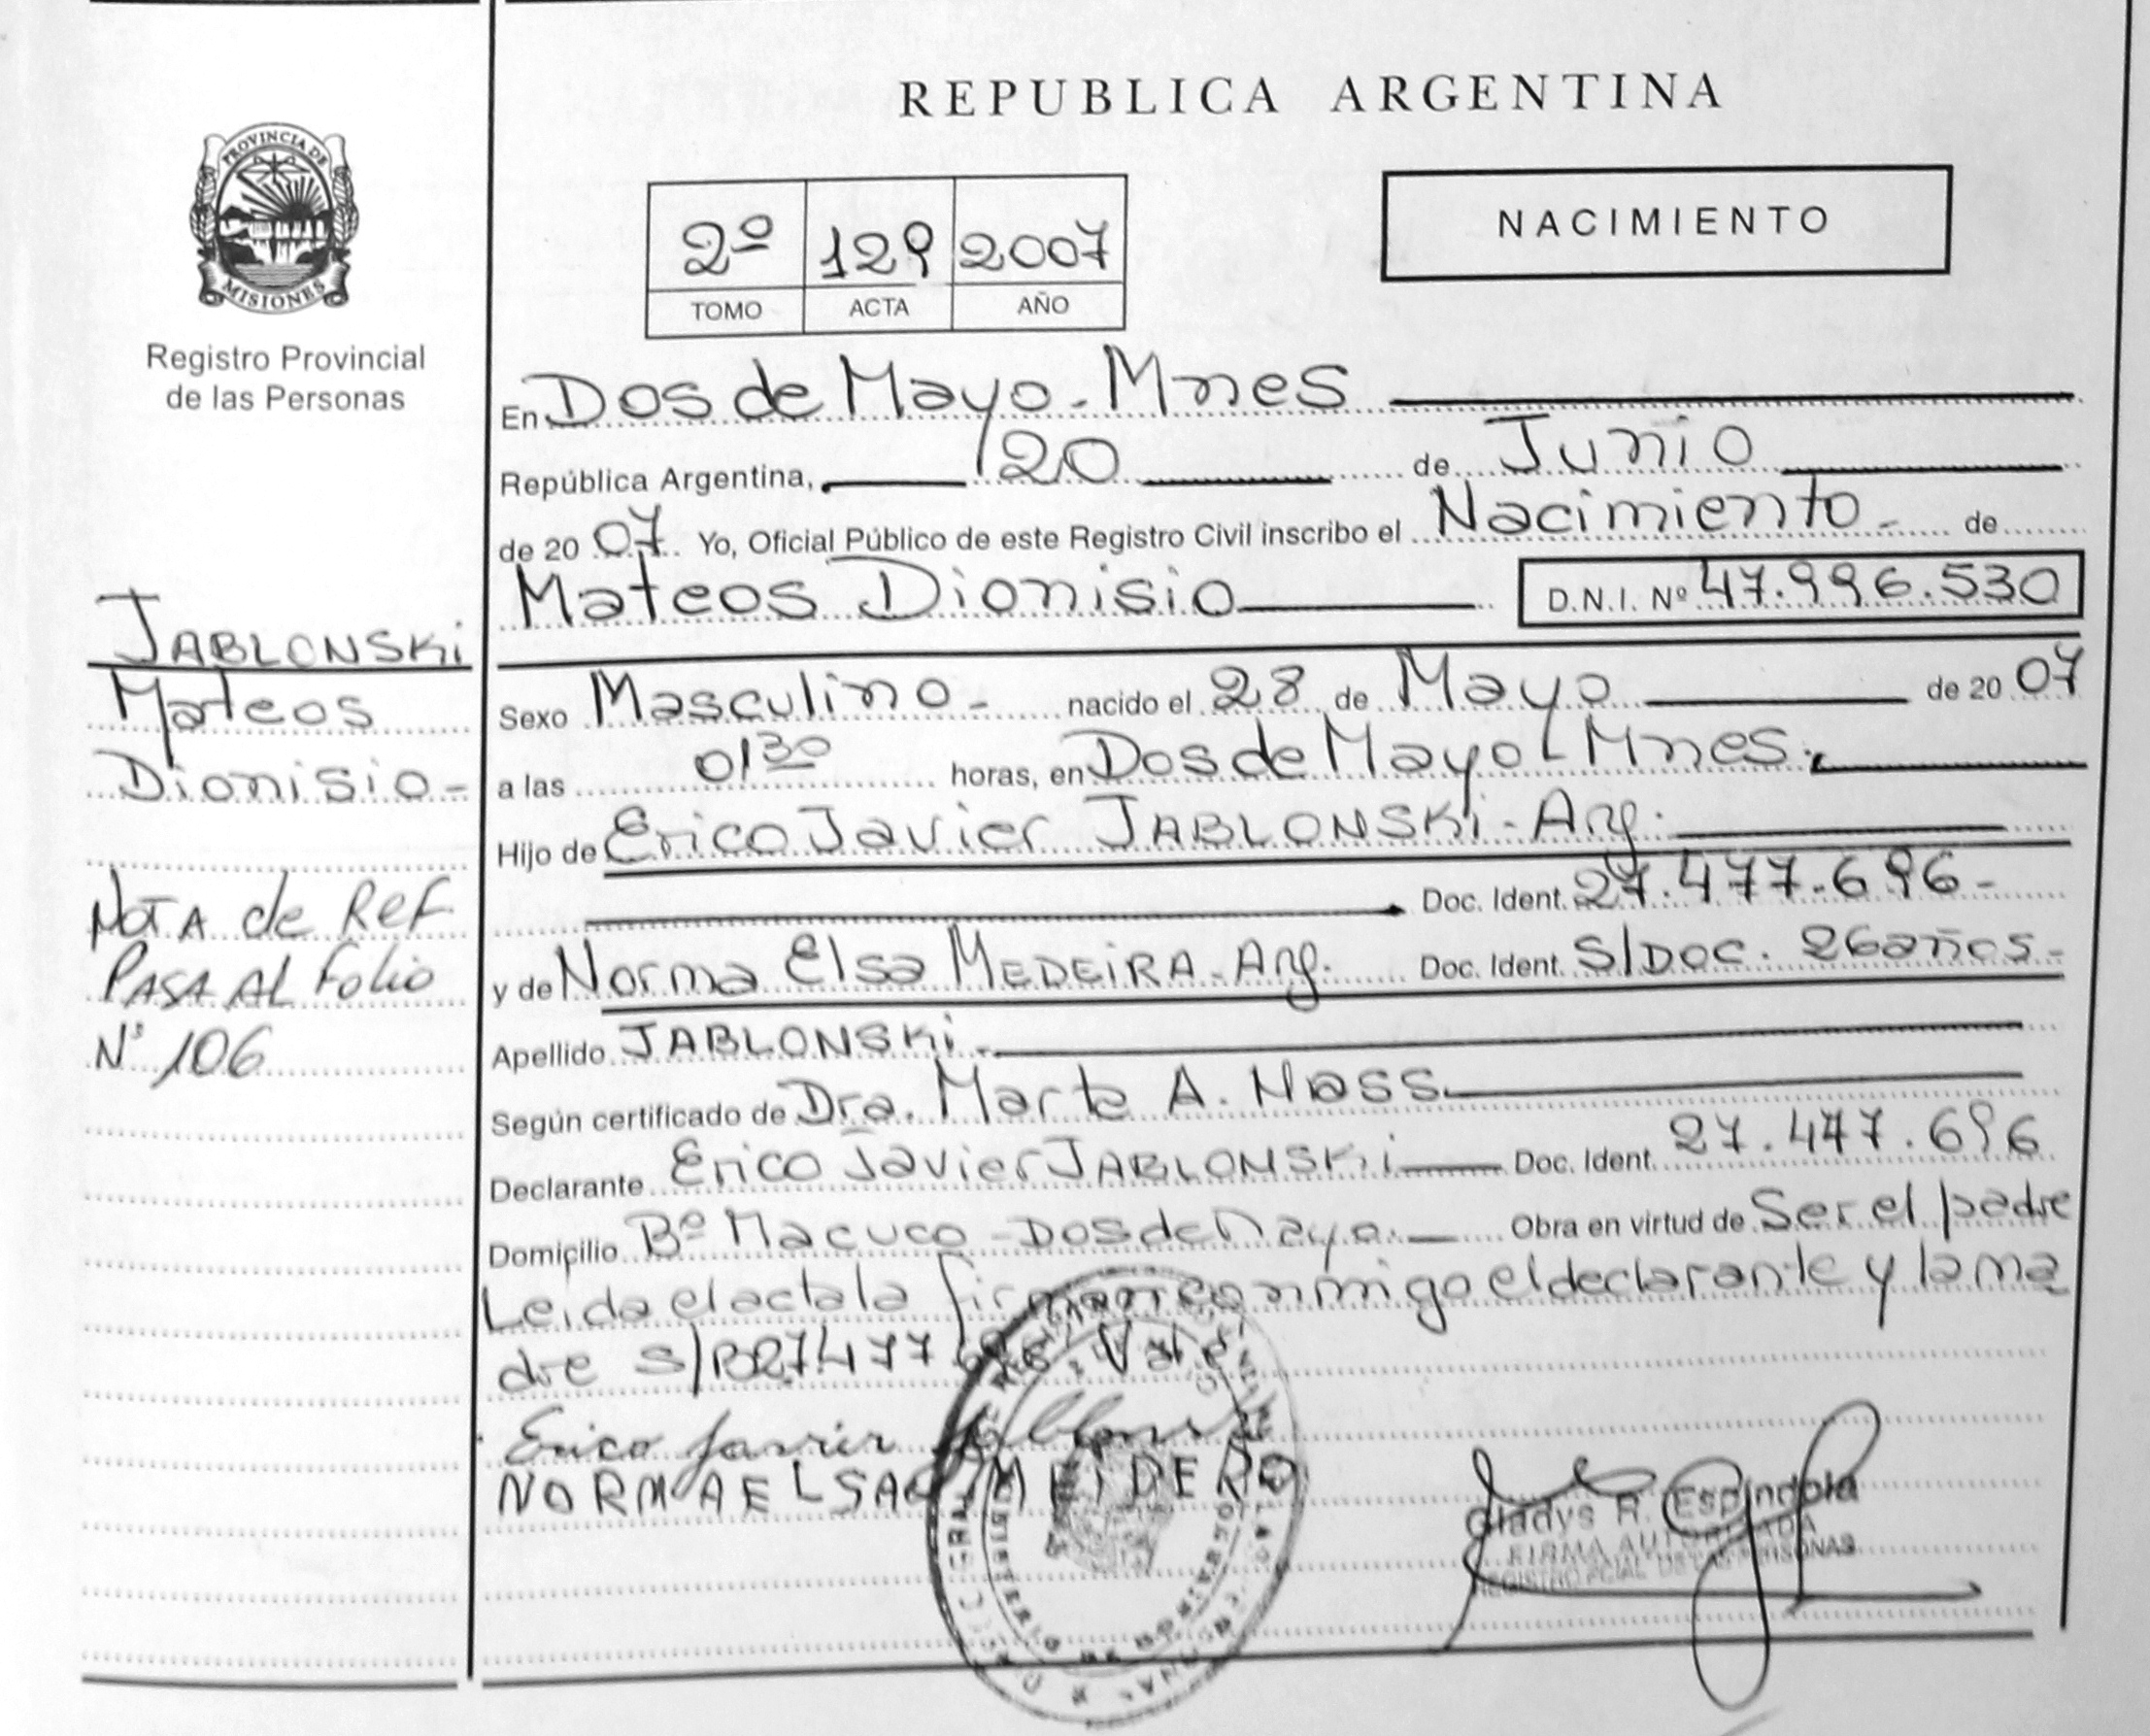 REPUBLICA ARGENTINA
PROVINCIA DE
MISIONES
Registro Provincial
de las Personas
2º 129 2007
TOMO ACTA AÑO
NACIMIENTO
En Dos de Mayo - Mnes
República Argentina, 20 de Junio
de 2007 Yo, Oficial Público de este Registro Civil inscribo el Nacimiento - de
Mateos Dionisio D.N.I. Nº 47.996.530
JABLONSKi
Mateos
Dionisio -
NOTA de Ref.
PASA AL folio
Nº 106
Sexo Masculino - nacido el 28 de Mayo de 2007
a las 01 30 horas, en Dos de Mayo - Mnes.
Hijo de Erico Javier JABLONSKi - Arg.
Doc. Ident. 27.477.696 -
y de Norma Elsa MEDEiRA - Arg. Doc. Ident. S/DOC. 26 años -
Apellido JABLONSKi -
Según certificado de Dra. Marta A. Nass
Declarante Erico Javier JABLONSKi Doc. Ident. 27.477.696
Domicilio Bº Macuco - Dos de Mayo. Obra en virtud de Ser el padre
Leida el acta la firman conmigo el declarante y la ma
dre S/B 27.477.696 Vale
Erico Javier
NORMA ELSA MEIDERO
Gladys R. Espindola
FIRMA AUTORIZADA
REGISTRO PCIAL. DE LAS PERSONAS